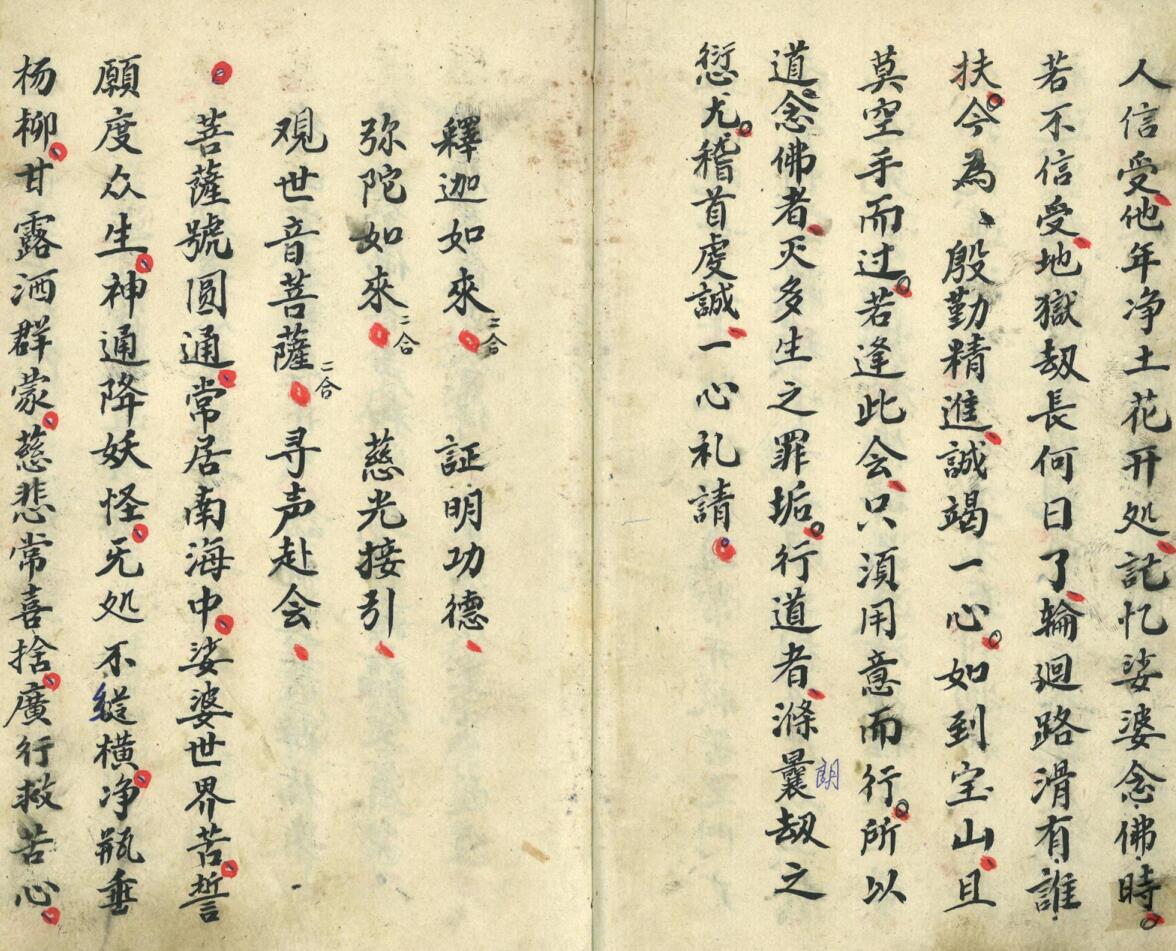 人信受他年净土花开处記忆娑婆念佛時
若不信受地獄刼長何日了輪廻路滑有誰
扶今為、殷勤精進誠竭一心如到宝山且
莫空手而过若逢此会只須用意而行所以
道念佛者灭多生之罪垢行道者滌曩刼之
朗
愆尤稽首虔誠一心礼請
釋迦如來二合 証明功德
弥陀如來二合 慈光接引
观世音菩薩二合 寻声赴会
菩薩號圆通常居南海中娑婆世界苦誓
願度众生神通降妖怪无处不縱橫净瓶垂
杨柳甘露洒群蒙慈悲常喜捨廣行救苦心